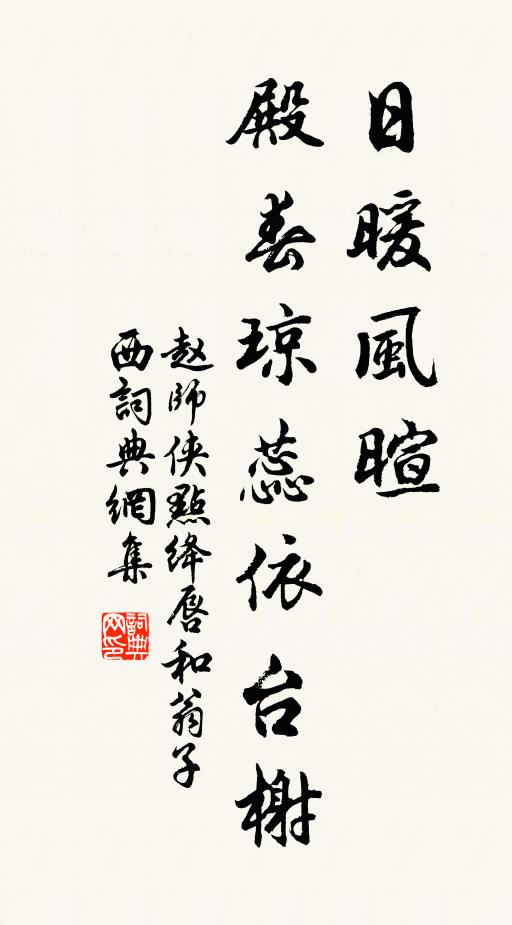 日暖風暄
殿春琼蕊依台榭
赵師侠點绛唇和翁子
西詞典網集
詞典
网印